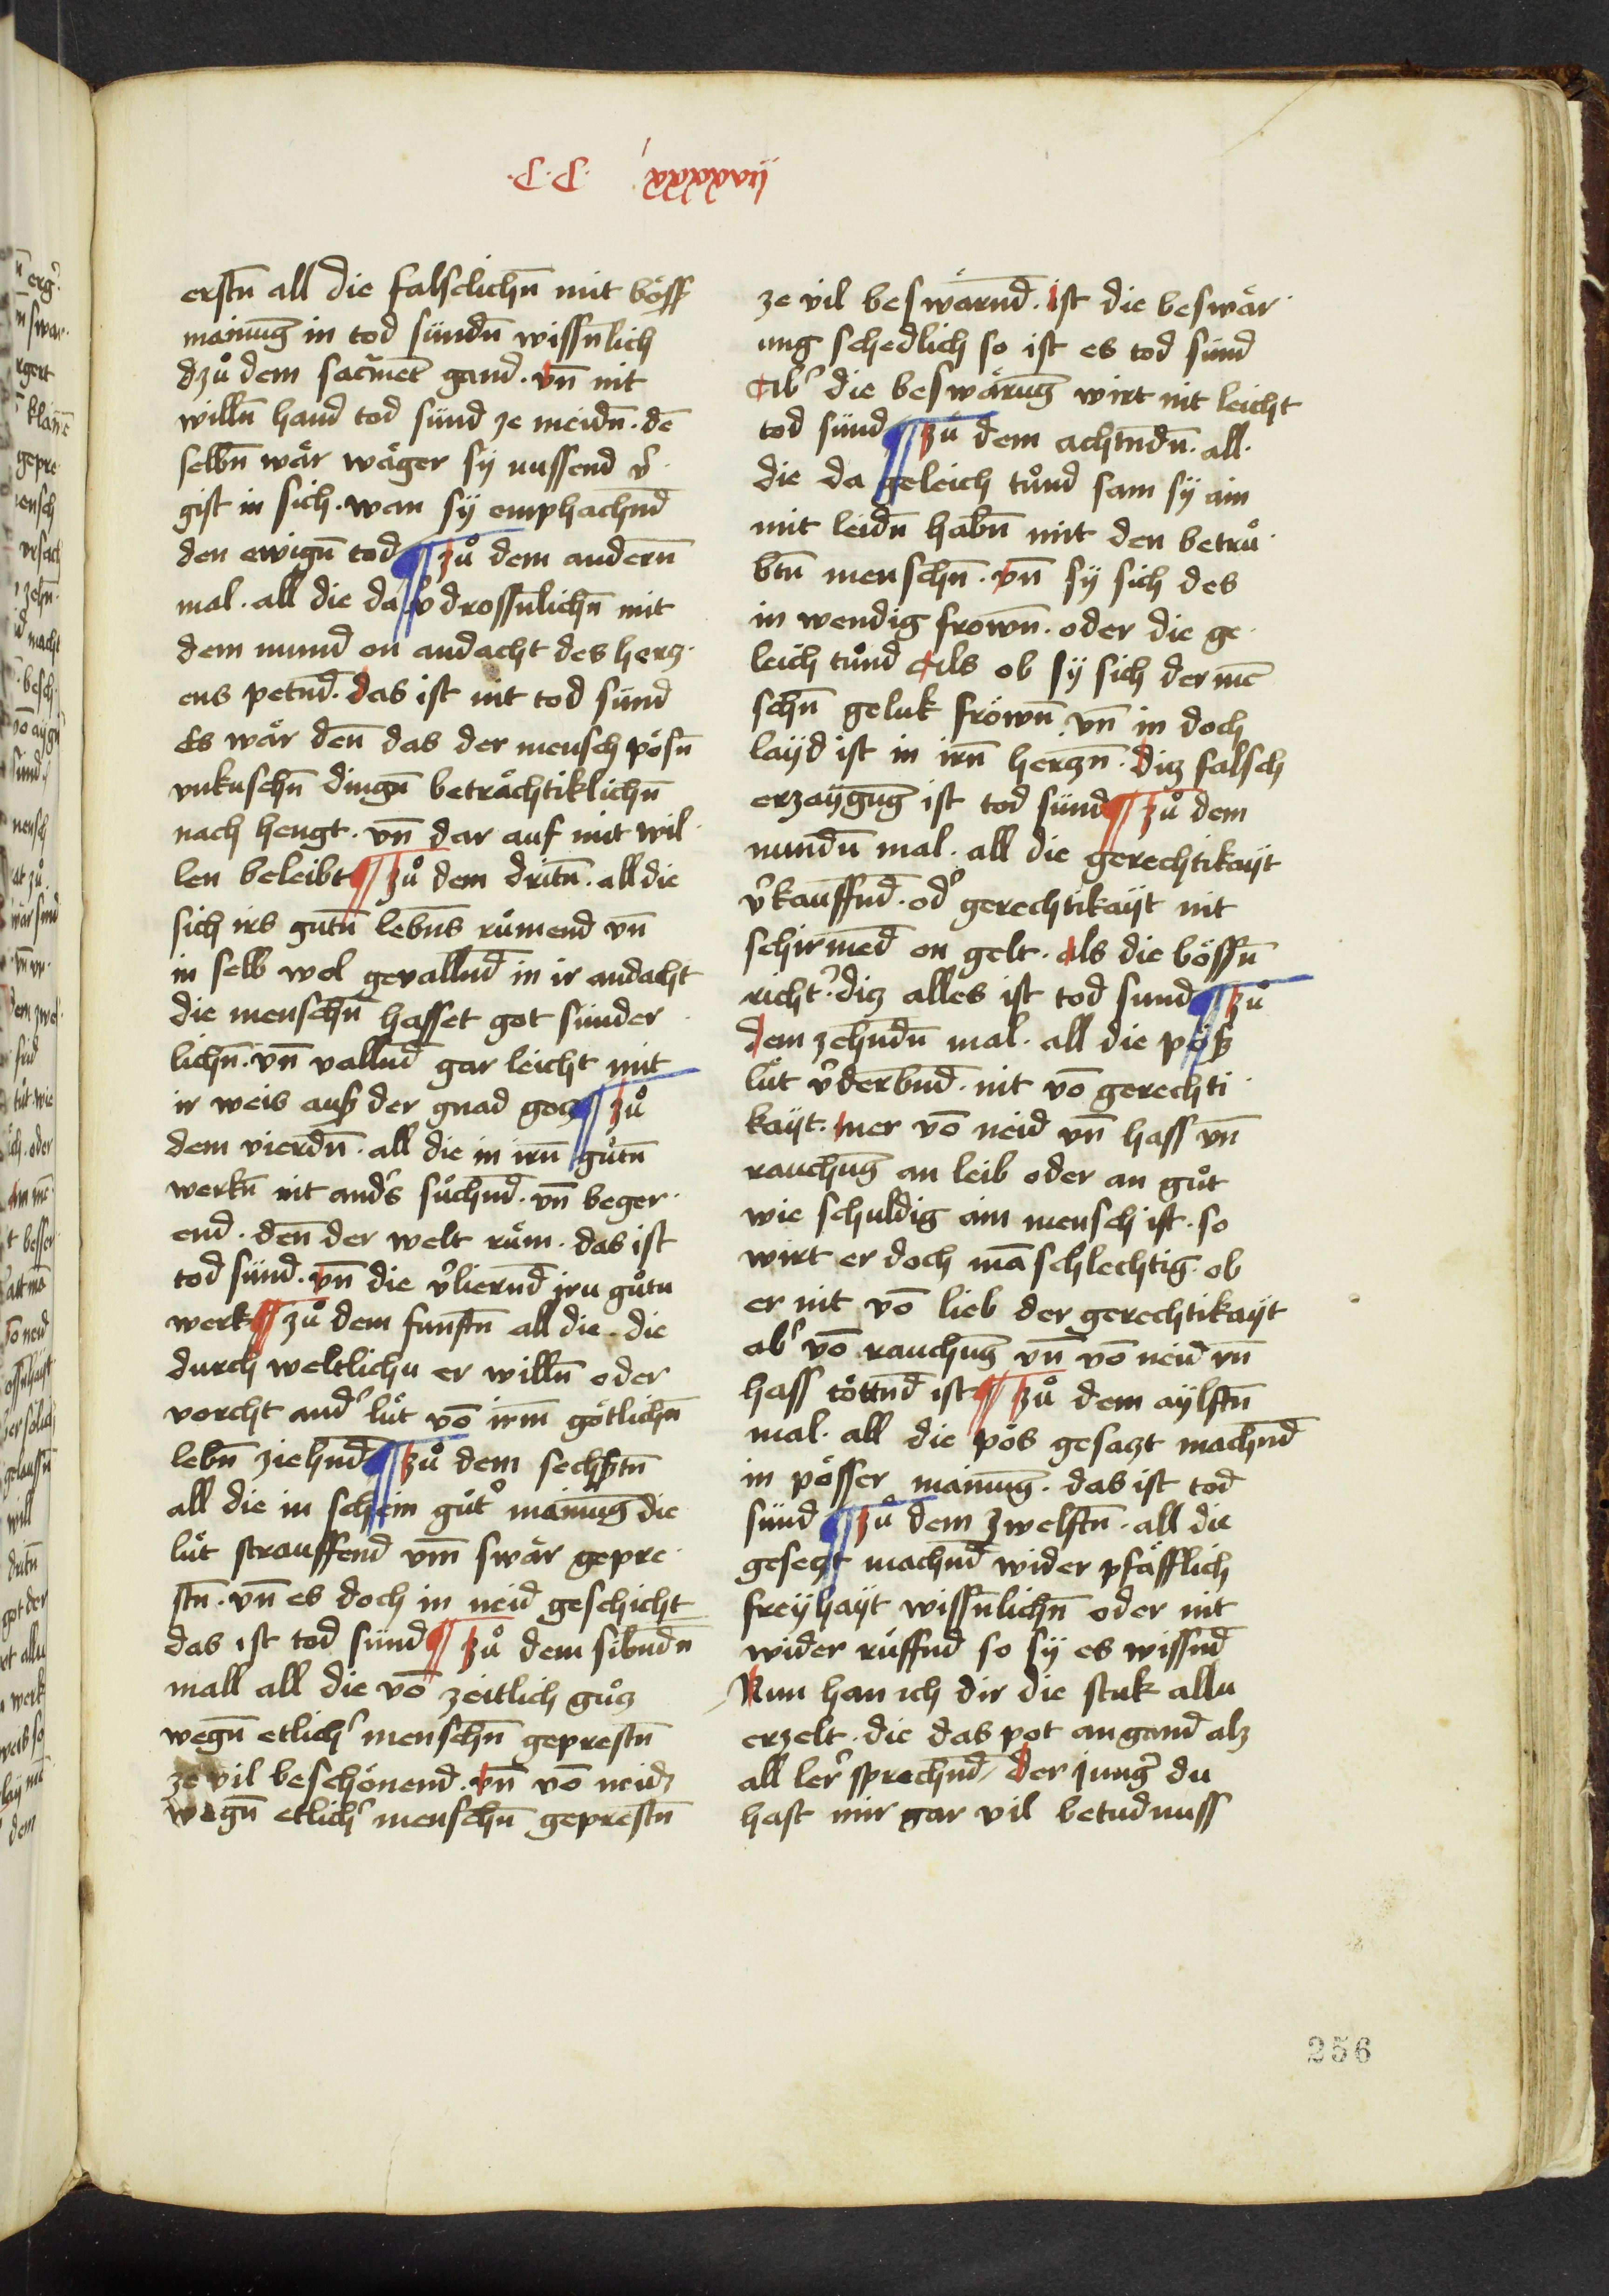 erstn̄ all die falsclichn̄ mit böss
mainūg in tod sündn̄ wissn̄lich
dzů dem sacm̄et gand. vn̄ nit
willn̄ hand tod sünd ze meidn̄. dē
selbn̄ wär wäger sy nussend v̾
gift in sich. wan sy emphachnd̄
den ewign̄ tod ¶ zů dem andern̄
mal. all die da v̾drossn̄lichn̄ mit
dem mund on andacht des hercz
ens petnd̄. das ist nit tod sünd
Es wär den̄ das der mensch pösn̄
vnkuschn̄ dingn̄ beträchtiklichn̄
nach hengt. vn̄ dar auf mit wil
len beleibt ¶ zů dem dritn̄. all die
sich irs gutn̄ lebn̄s rümend vn̄
in selb wol gevallnd̄ in ir andacht
die menschn̄ hasset got sünder
lichn̄. vn̄ vallnd̄ gar leicht mit
ir weis auß der gnad gocz ¶ zů
dem vierdn̄. all die in irn̄ gůtn̄
werkn̄ nit and̾s sůchnd̄. vn̄ beger
end. den̄ der welt rům. das ist
tod sünd. vn̄ die v̾liernd̄ irn gůtn
werk ¶ zů dem funftn̄ all die. die
durch weltlichn er willn̄ oder
vorcht and̾ lüt vō irm̄ götlichn̄
lebn̄ ziehnd̄ ¶ zů dem sechßtn̄
all die in schein gůt̾ mainūg die
lüt strauffend vm̄ swär gepre
stn̄. vn̄ es doch in neid geschicht
das ist tod sünd ¶ zů dem sibndn̄
mall all die vō zeitlich gůcz
wegn̄ etlich̾ menschn̄ geprestn̄
ze vil beschönend. vn̄ vō neidz
wegn̄ etlich̾ menschn̄ geprestn̄
ze vil beswärnd̄. ist die beswär
ung schedlich so ist es tod sünd
Ab̾ die beswärūg wirt nit leicht
tod sünd ¶ zů dem achtndn̄. all
die da geleich tůnd sam sy ain
mit leidn̄ habn̄ mit den betrů
btn̄ menschn̄. vn̄ sy sich des
in wendig frown̄. oder die ge
leich tůnd Als ob sy sich der mē
schn̄ geluk fröwn̄ vn̄ in doch
layd ist in irn̄ herczn̄. dicz falsch
erzaygūg ist tod sünd ¶ zů dem
nundn̄ mal. all die gerechtikayt
v̾kauffnd̄. od̾ gerechtikayt nit
schirmēd on gelt. als die bössn̄
richt̾. dicz alles ist tod sund ¶ zů
dem zehndn̄ mal. all die pöß
lüt v̾derbnd̄. nit vō gerechti
kayt. mer vō neid vn̄ hass vn̄
rauchūg an leib oder an gůt
wie schuldig ain mensch ist. so
wirt er doch mā schlechtig. ob
er nit vō lieb der gerechtikayt
ab̾ vō rauchūg vn̄ vō neid vn̄
hass töttnd̄ ist ¶ zů dem aylftn̄
mal. all die pös gesaczt machnd̄
in pösser mainūg. das ist tod
sünd ¶ zů dem zwelftn̄. all die
geseczt machnd̄ wider pfäfflich
freyhayt wissn̄lichn̄ oder nit
wider rüffnd̄ so sy es wissnd̄
Nun han ich dir die stuk alln
erzelt. die das pot angand alz
all ler̾ sprechnd̄ der jung̾ du
hast mir gar vil betudnuss
256